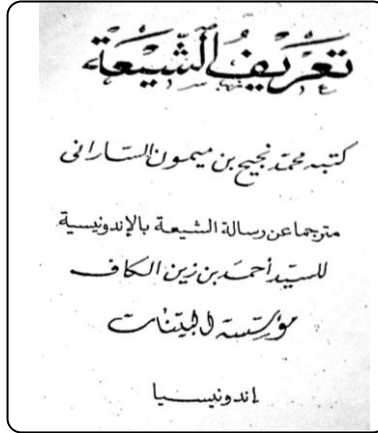 تعريف الشيعة
كتبه محمد نجيح بن ميمون الساراني
مترجما عن رسالة الشيعة بالإندونيسية
للسيد أحمد بن زين الكاف
مؤسسة البينات
إندونيسيا